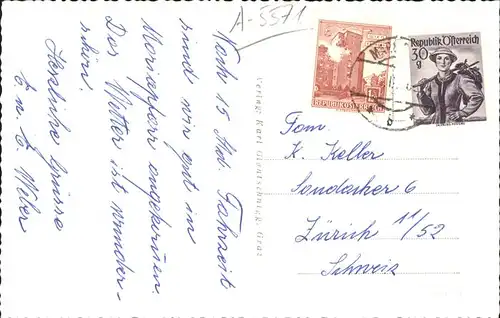 A-5571
Nach 15 Std. Fahrzeit
sind wir gut in
Mariapfarr angekommen.
Das Wetter ist wunder-
schön.
Herzliche Grüsse
E. u. E. Weber
Verlag: Karl Glantschnigg, Graz
REPUBLIK ÖSTERREICH
Republik Österreich
30
g
Fam.
K. Keller
Sondacker 6
Zürich 11/52
Schweiz